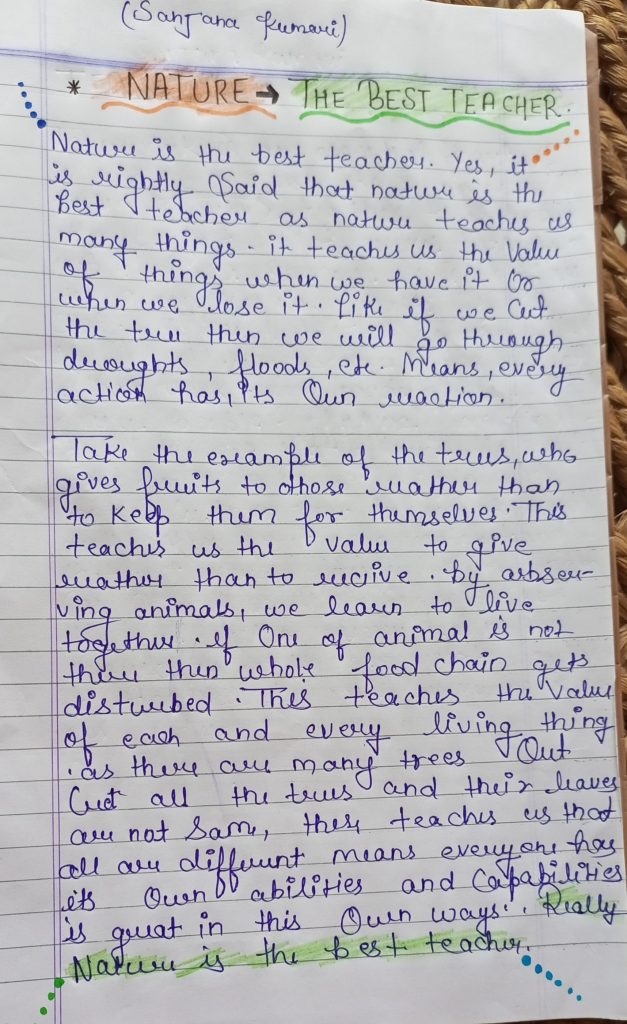 (Sanjana Kumari)
* NATURE → THE BEST TEACHER.
Nature is the best teacher. Yes, it
is rightly said that nature is the
Best teacher as nature teaches us
many things. it teaches us the Value
of things when we have it Or
when we lose it. Like if we Cut
the tree then we will go through
droughts, floods, etc. Means, every
action has, its Own reaction.
Take the example of the trees, who
gives fruits to those reather than
to Keep them for themselves. This
teaches us the value to give
reather than to recive. by arbser-
ving animals, we learn to live
together. if One of animal is not
there then whole food chain gets
disturbed. This teaches the Value
of each and every living thing
. as there are many trees Out
Cut all the trees and their leaves
are not Same, these teaches us that
all are different means everyone has
its Own abilities and Capabilities
is great in this Own ways. Really
Nature is the best teacher.